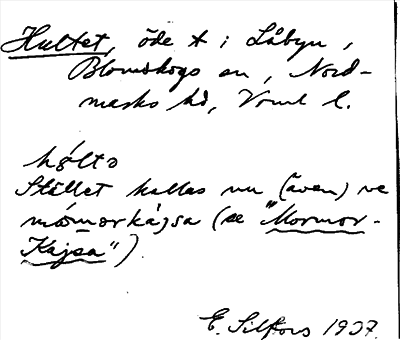 Hultet, öde t i Låbyn,
Blomskogs sn, Nord-
marks hd, Vrml l.
hølta
Stället kallas nu (även)
mómorkájsa (se "Mormor-
Kajsa")
E. Silfors 1937.